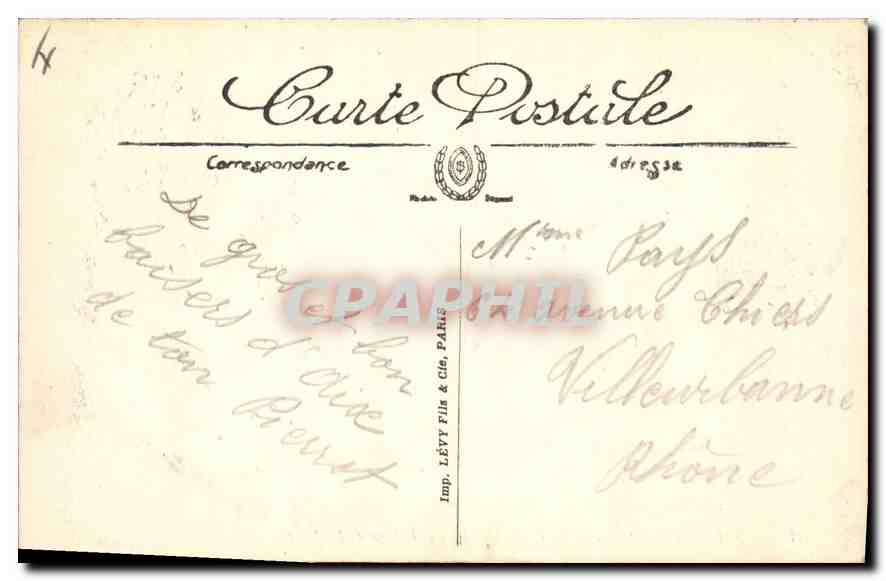 4
Carte Postale
Correspondance
Adresse
De gros et bon
baisers d'Aix
de ton Pierrot
Imp. LÉVY Fils & Cie, PARIS
Mme Pays
avenue Thiers
Villeurbanne
Rhône
CPAPHIL